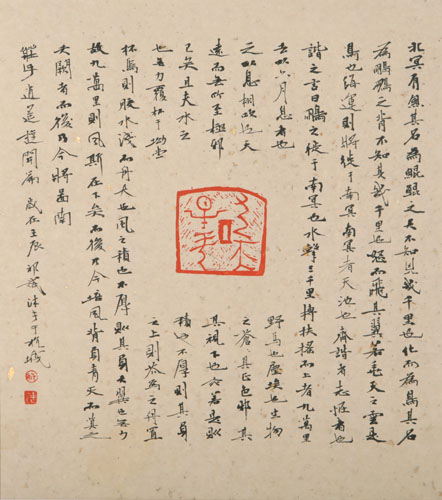 北冥有魚其名為鯤鯤之大不知其幾千里也化而為鳥其名
為鵬鵬之背不知其幾千里也怒而飛其翼若垂天之雲是
鳥也海運則將徙于南冥南冥者天池也齊諧者志怪者也
諧之言曰鵬之徙于南冥也水擊三千里摶扶搖而上者九萬里
去以六月息者也野馬也塵埃也生物
之以息相吹也天之蒼其正色邪其
遠而無所至極邪其視下也亦若是則
已矣且夫水之積也不厚則其負
也无力覆杯于坳堂之上則芥為之舟置
杯焉則膠水淺而舟大也風之積也不厚則其負大翼也無力
故九萬里則風斯在下矣而後乃今培風背負青天而莫之
夭閼者而後乃今將圖南
莊子逍遙遊開篇 歲在壬辰